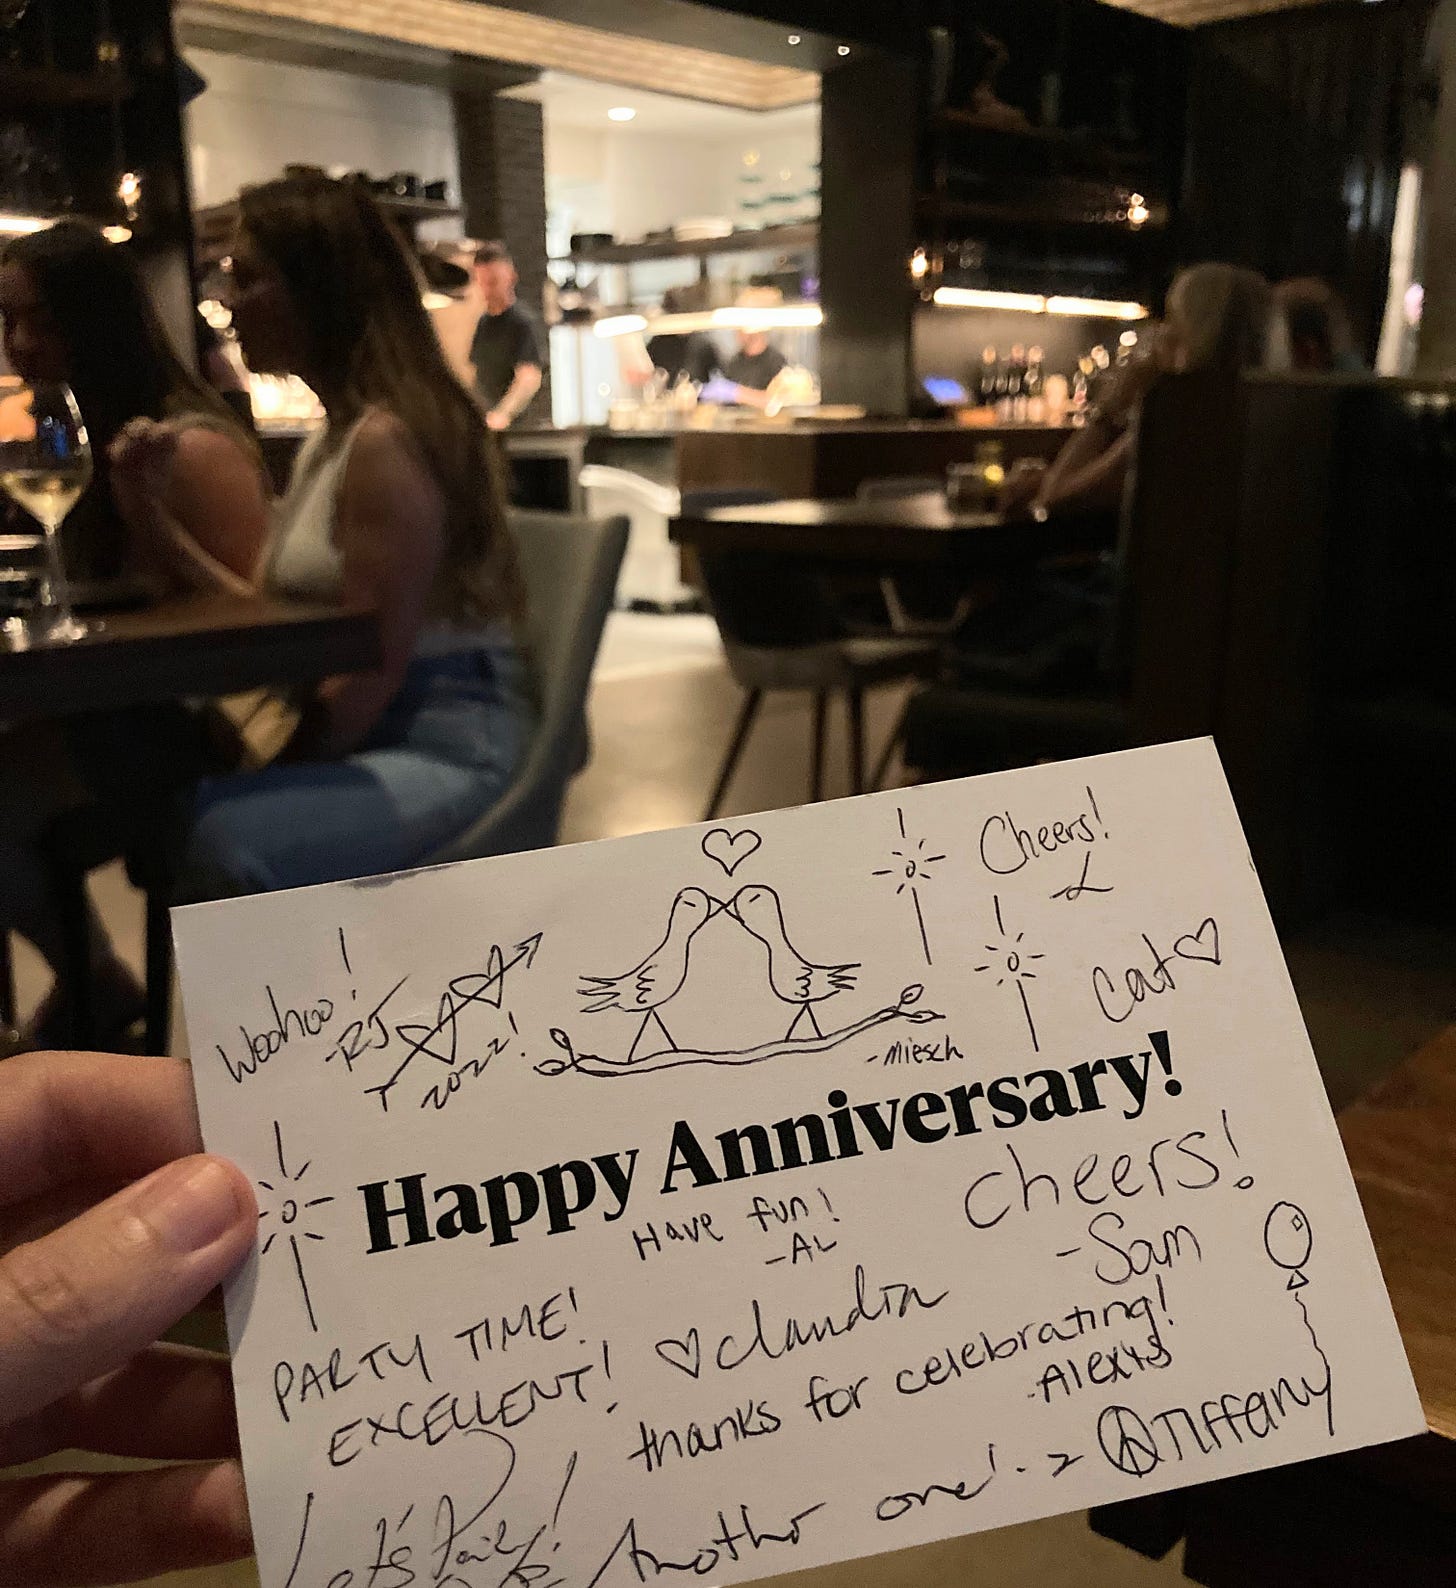 Woohoo!
-RJ
2022!
-Miesch
Cheers!
-L
Cat
Happy Anniversary!
Have fun!
-AL
Cheers!
-Sam
PARTY TIME!
EXCELLENT!
Claudia
thanks for celebrating!
Alexis
Let's
Another one!
Tiffany